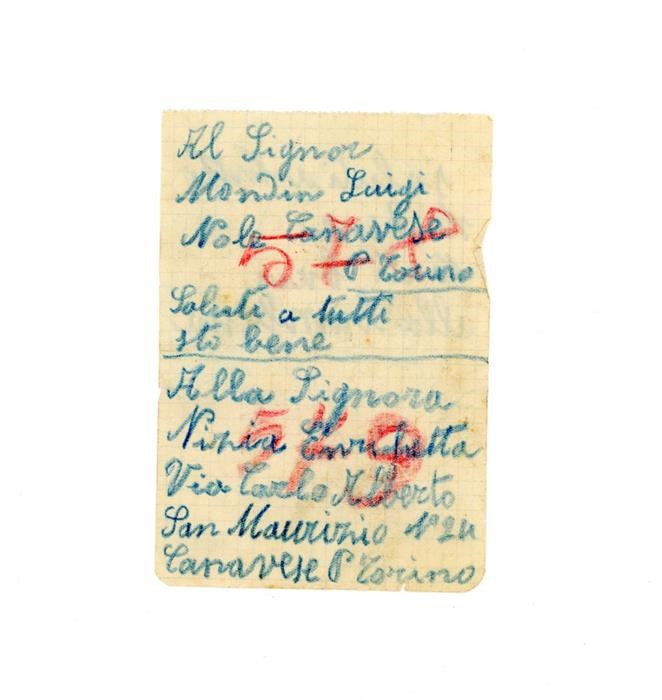 Al Signor
Mondin Luigi
Nole Canavese
P Torino
Saluti a tutti
sto bene
Alla Signora
Ninia Enrichetta
Via Carlo Alberto
San Maurizio N° 24
Canavese P Torino
578
579